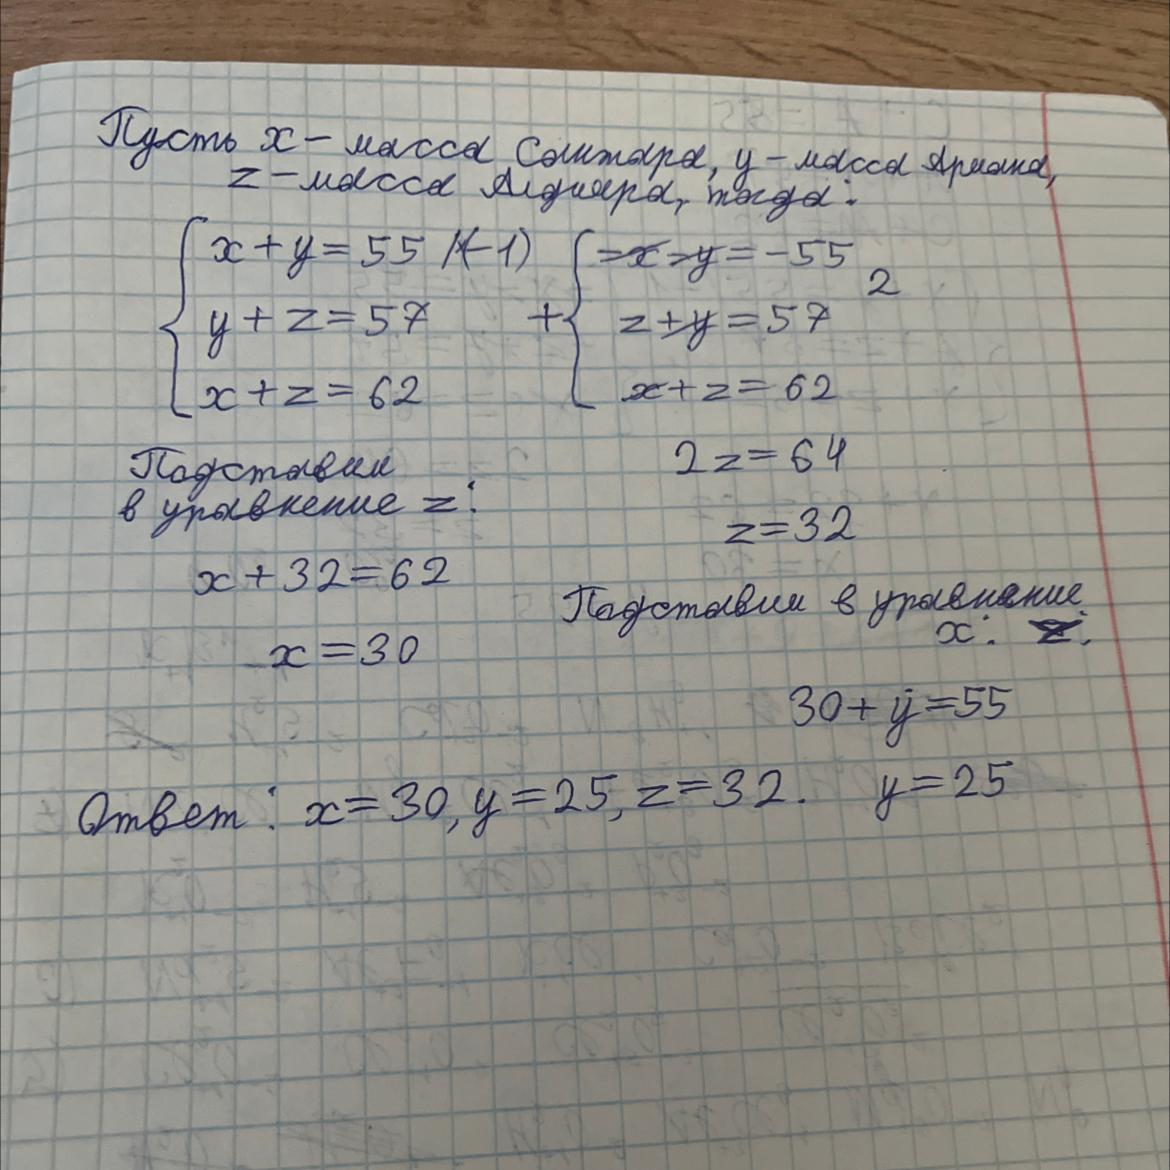 Пусть x – масса Санжара, y – масса Армана,
z – масса Алдияра, тогда:
x + y = 55 |(-1)
-x - y = -55
2
y + z = 57
+
z + y = 57
x + z = 62
x + z = 62
2z = 64
z = 32
Подставим
в уравнение z:
x + 32 = 62
x = 30
Подставим в уравнение
x:
30 + y = 55
y = 25
Ответ: x = 30, y = 25, z = 32.